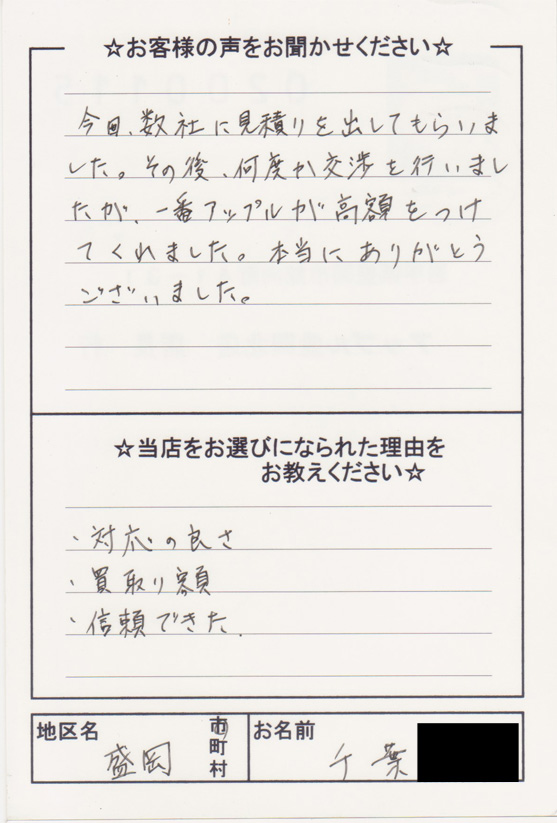 ☆お客様の声をお聞かせください☆
今回、数社に見積りを出してもらいま
した。その後、何度か交渉を行いまし
たが、一番アップルが高額をつけ
てくれました。本当にありがとう
ございました。
☆当店をお選びになられた理由を
お教えください☆
・対応の良さ
・買取り額
・信頼できた.
地区名
盛岡
市
町
村
お名前
千葉